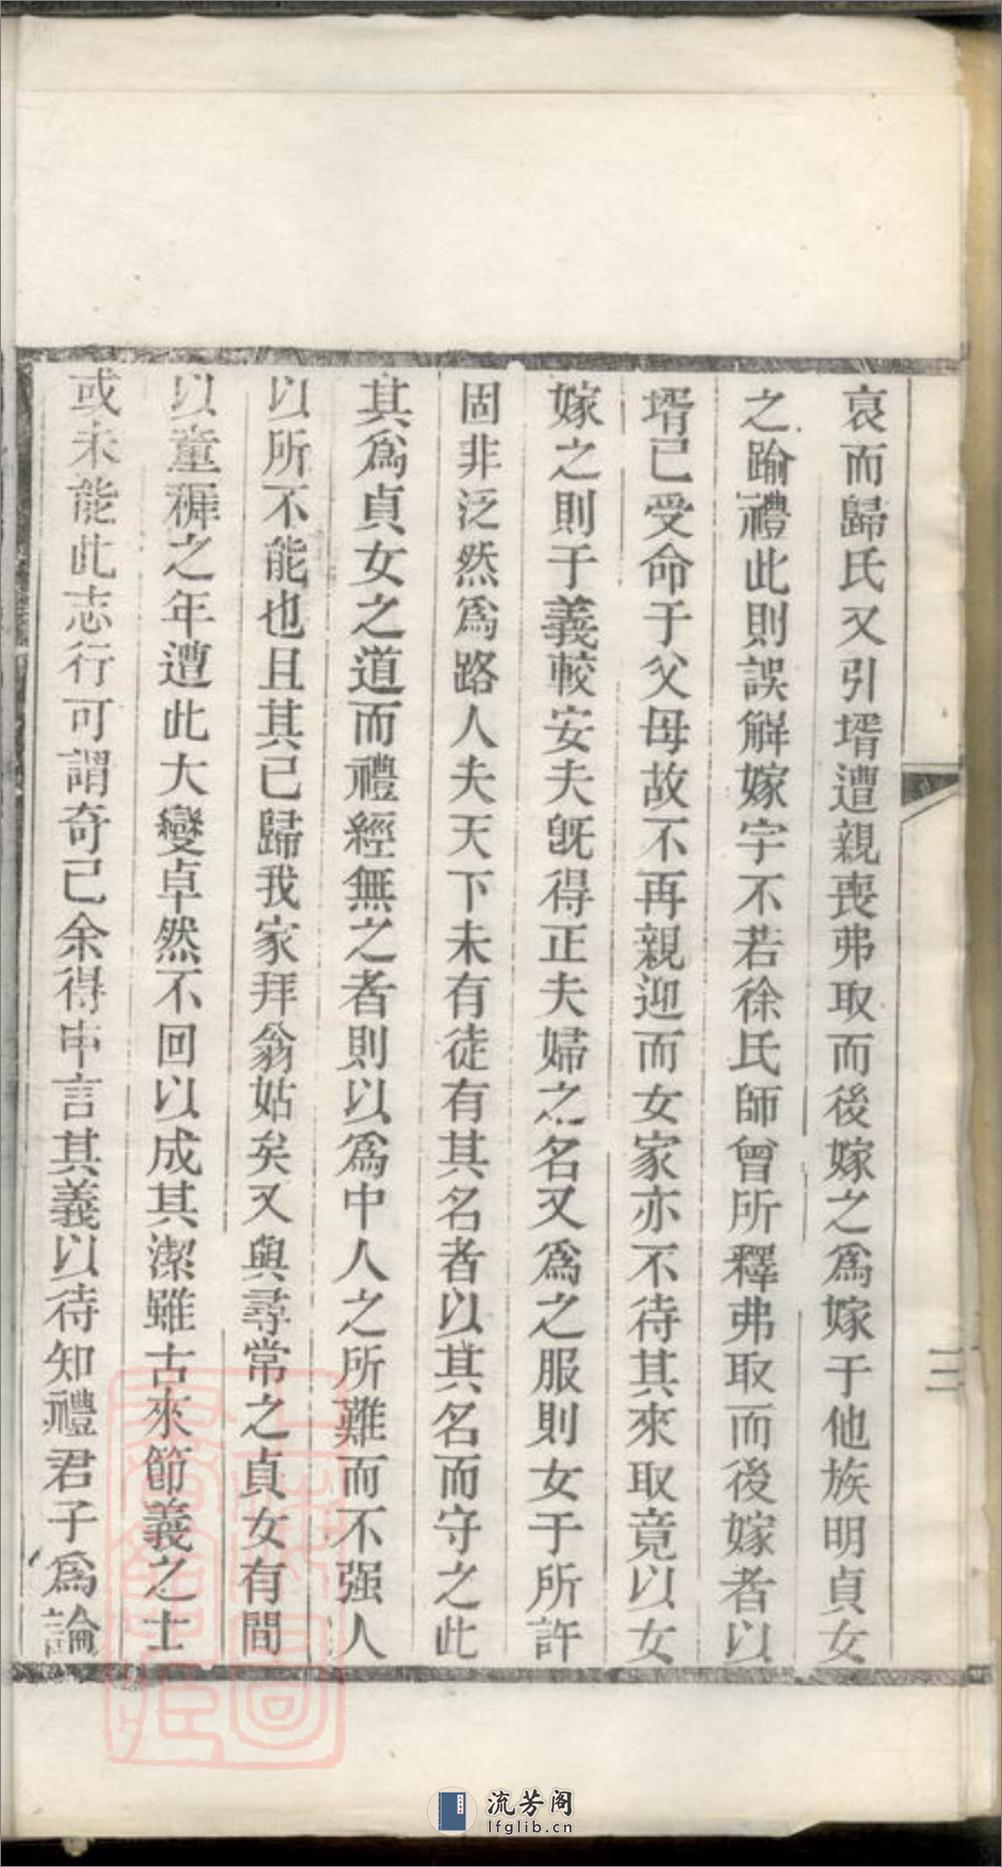 哀而歸氏又引壻遭親喪弗取而後嫁之爲嫁于他族明貞女
之踰禮此則誤解嫁字不若徐氏師曾所釋弗取而後嫁者以
壻已受命于父母故不再親迎而女家亦不待其來取竟以女
嫁之則于義較安夫旣得正夫婦之名又爲之服則女于所許
固非泛然爲路人夫天下未有徒有其名者以其名而守之此
其爲貞女之道而禮經無之者則以爲中人之所難而不强人
以所不能也且其已歸我家拜翁姑矣又與尋常之貞女有間
以童穉之年遭此大變卓然不回以成其潔雖古來節義之士
或未能此志行可謂奇已余得申言其義以待知禮君子爲論
三
流芳阁
lfglib.cn